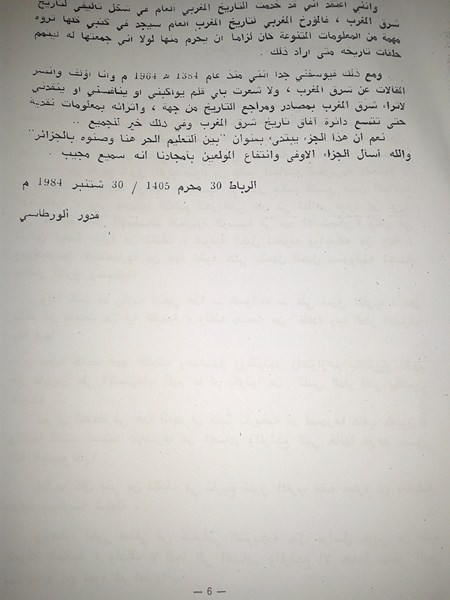 وانني اعتقد اني قد خدمت التاريخ المغربي العام في شكل تأليفي لتاريخ
شرق المغرب ، فالمؤرخ المغربي لتاريخ المغرب العام سيجد في كتبي كلها ثروة
مهمة من المعلومات المتنوعة كان لزاما ان يحرم منها لولا اني جمعتها له ليتمم
حلقات تاريخه متى اراد ذلك .
ومع ذلك فيوسفني جدا انني منذ عام 1384 هـ 1964 م وانا اؤلف وانشر
المقالات عن شرق المغرب ، ولا شعرت باي قلم يواكبني او ينافسني او ينقدني
لاثراء شرق المغرب بمصادر ومراجع التاريخ من جهة ، واثرائه بمعلومات نقدية
حتى تتسع دائرة آفاق تاريخ شرق المغرب وفي ذلك خير للجميع ..
نعم ان هذا الجزء يبتدىء بعنوان "بين التعليم الحر هنا وصنوه بالجزائر"
والله أسأل الجزاء الاوفى وانتفاع المولعين بأمجادنا انه سميع مجيب .
الرباط 30 محرم 1405 / 30 شتنبر 1984 م
قدور الورطاسي
— 6 —